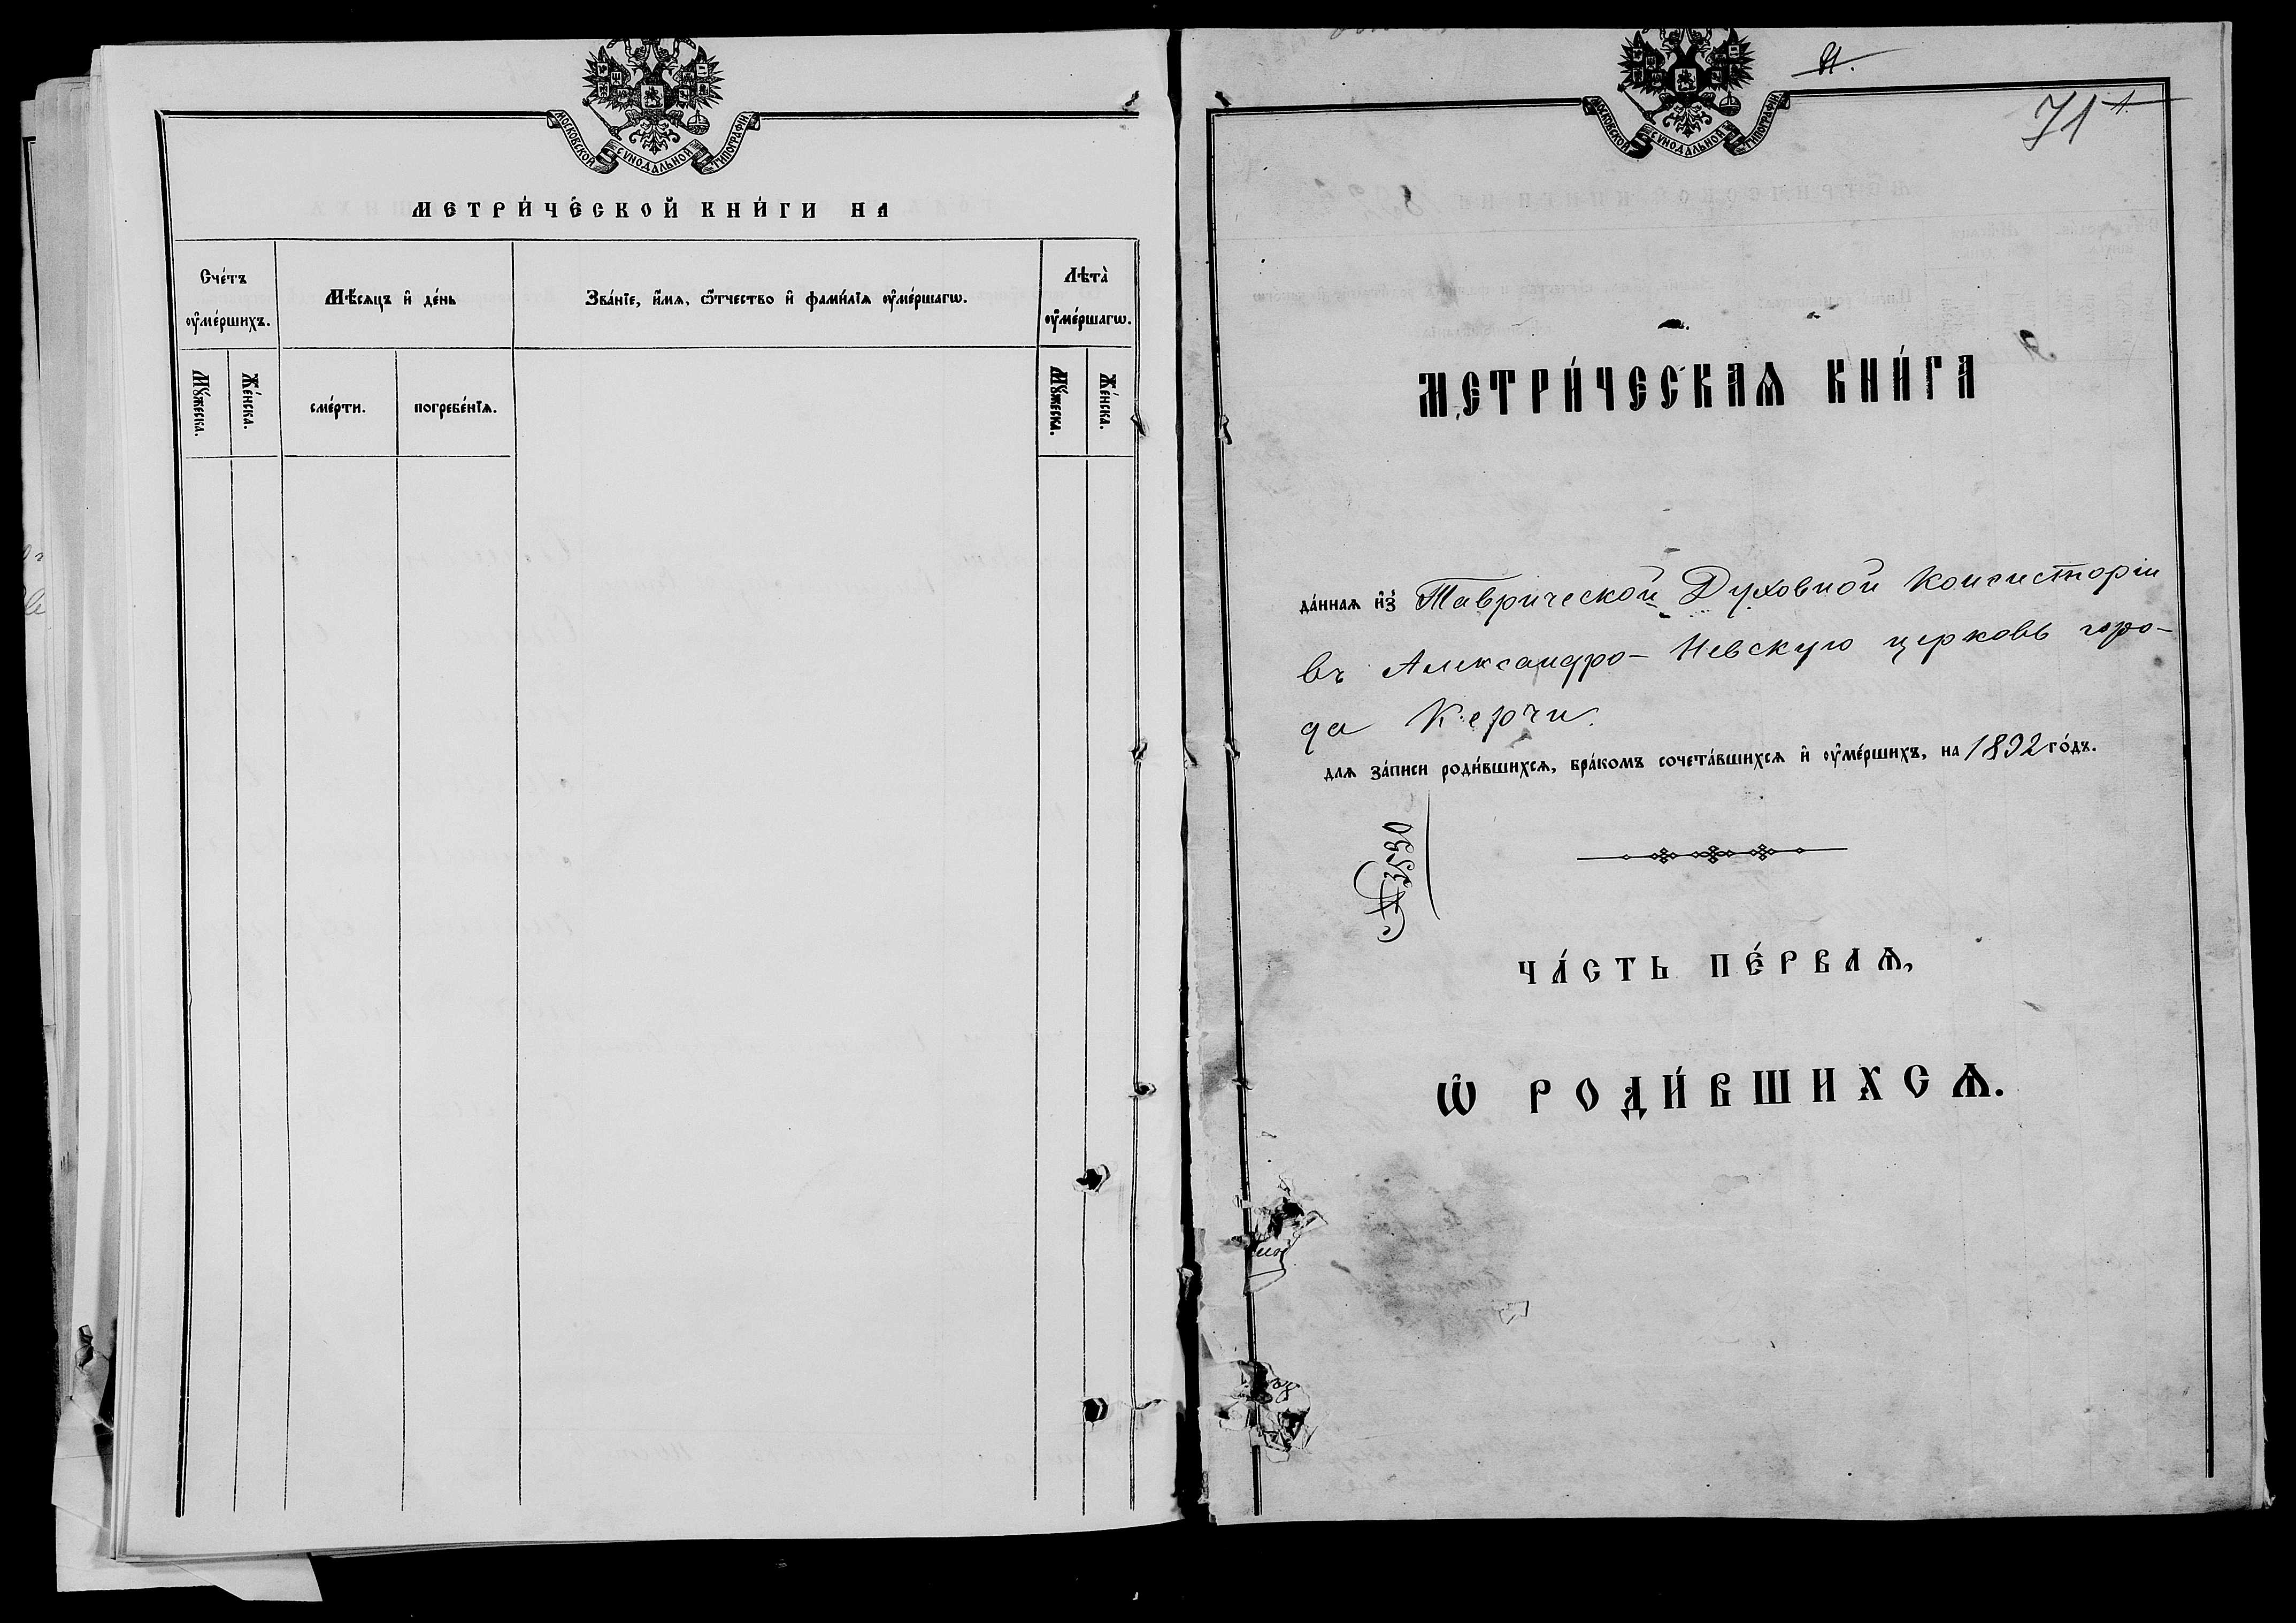 МОСКОВСКОЙ СѴНОДАЛЬНОЙ ТИПОГРАФІИ
МЕТРИ́ЧЕСКОЙ КНИ́ГИ НА
Сче́тъ ᲂу҆ме́ршихъ.
Мѣ́сяцъ и҆ де́нь
Зва́нїе, и҆́мѧ, ѻ҆́тчество и҆ фами́лїѧ ᲂу҆ме́ршагѡ.
Лѣта̀ ᲂу҆ме́ршагѡ.
Мꙋ́жеска.
Же́нска.
сме́рти.
погребе́нїѧ.
Мꙋ́жеска.
Же́нска.
МОСКОВСКОЙ СѴНОДАЛЬНОЙ ТИПОГРАФІИ
71
МЕТРИ́ЧЕСКАѦ КНИ́ГА
да́ннаѧ и҆з̾ Таврической Духовной Консисторіи
въ Александро-Невскую церковь горо-
да Керчи.
длѧ за́писи роди́вшихсѧ, бра́комъ сочета́вшихсѧ и҆ ᲂу҆ме́ршихъ, на 1892 го́дъ.
ЧА́СТЬ ПЕ́РВАѦ,
Ѡ҆ РОДИ́ВШИХСѦ.